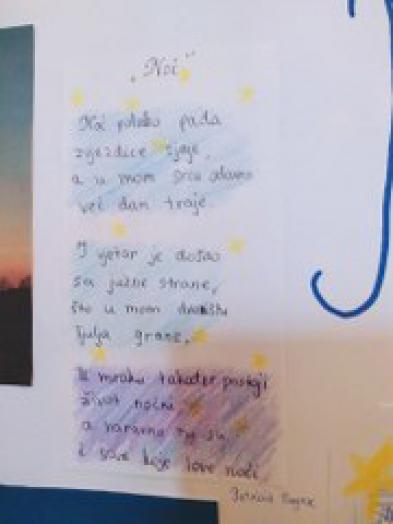 „Noć"
Noć polako pada
zvjezdice sjaje,
a u mom srcu odavno
već dan traje.
I vjetar je došao
sa južne strane,
što u mom dvorištu
ljulja grane.
U mraku također postoji
život noćni
a naravno tu su
i sove koje love noći